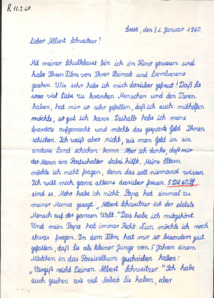 R 11.2.60
Soest, den 31. Januar 1960
Lieber Albert Schweitzer!
Mit meiner Schulklasse bin ich im Kino gewesen und
habe Ihren Film von Ihrer Heimat und Lambarene
gesehen. Wie sehr habe ich mich darüber gefreut! Daß Sie
so viel Liebe zu kranken Menschen und den Tieren
haben, hat mir so sehr gefallen, daß ich auch mithelfen
möchte, so gut ich kann. Deshalb habe ich mein
aufgemacht und möchte das gesparte Geld Ihnen
schicken. Ich weiß aber nicht, wie man Geld in ein
anderes Land schicken kann. Aber ich denke, daß mir
der Mann am Postschalter dabei hilft. Meine Eltern
möchte ich nicht fragen, denn das soll niemand wissen.
Ich will mich ganz alleine darüber freuen. 5 DM
sind es. Mehr habe ich nicht. Papa hat einmal zu
meiner Mama gesagt, Albert Schweitzer ist der
Mensch auf der ganzen Welt. Das habe ich mitgehört.
Und mein Papa hat immer Recht. Nun möchte ich noch
etwas fragen. In dem Film hat mir so besonders gut
gefallen, daß Sie als kleiner Junge von Jahren einem
Mädchen in das Poesiealbum geschrieben haben:
"Vergiß nicht Deinen Albert Schweitzer" Ich habe
auch gesehen wie viel Arbeit Sie haben, aber